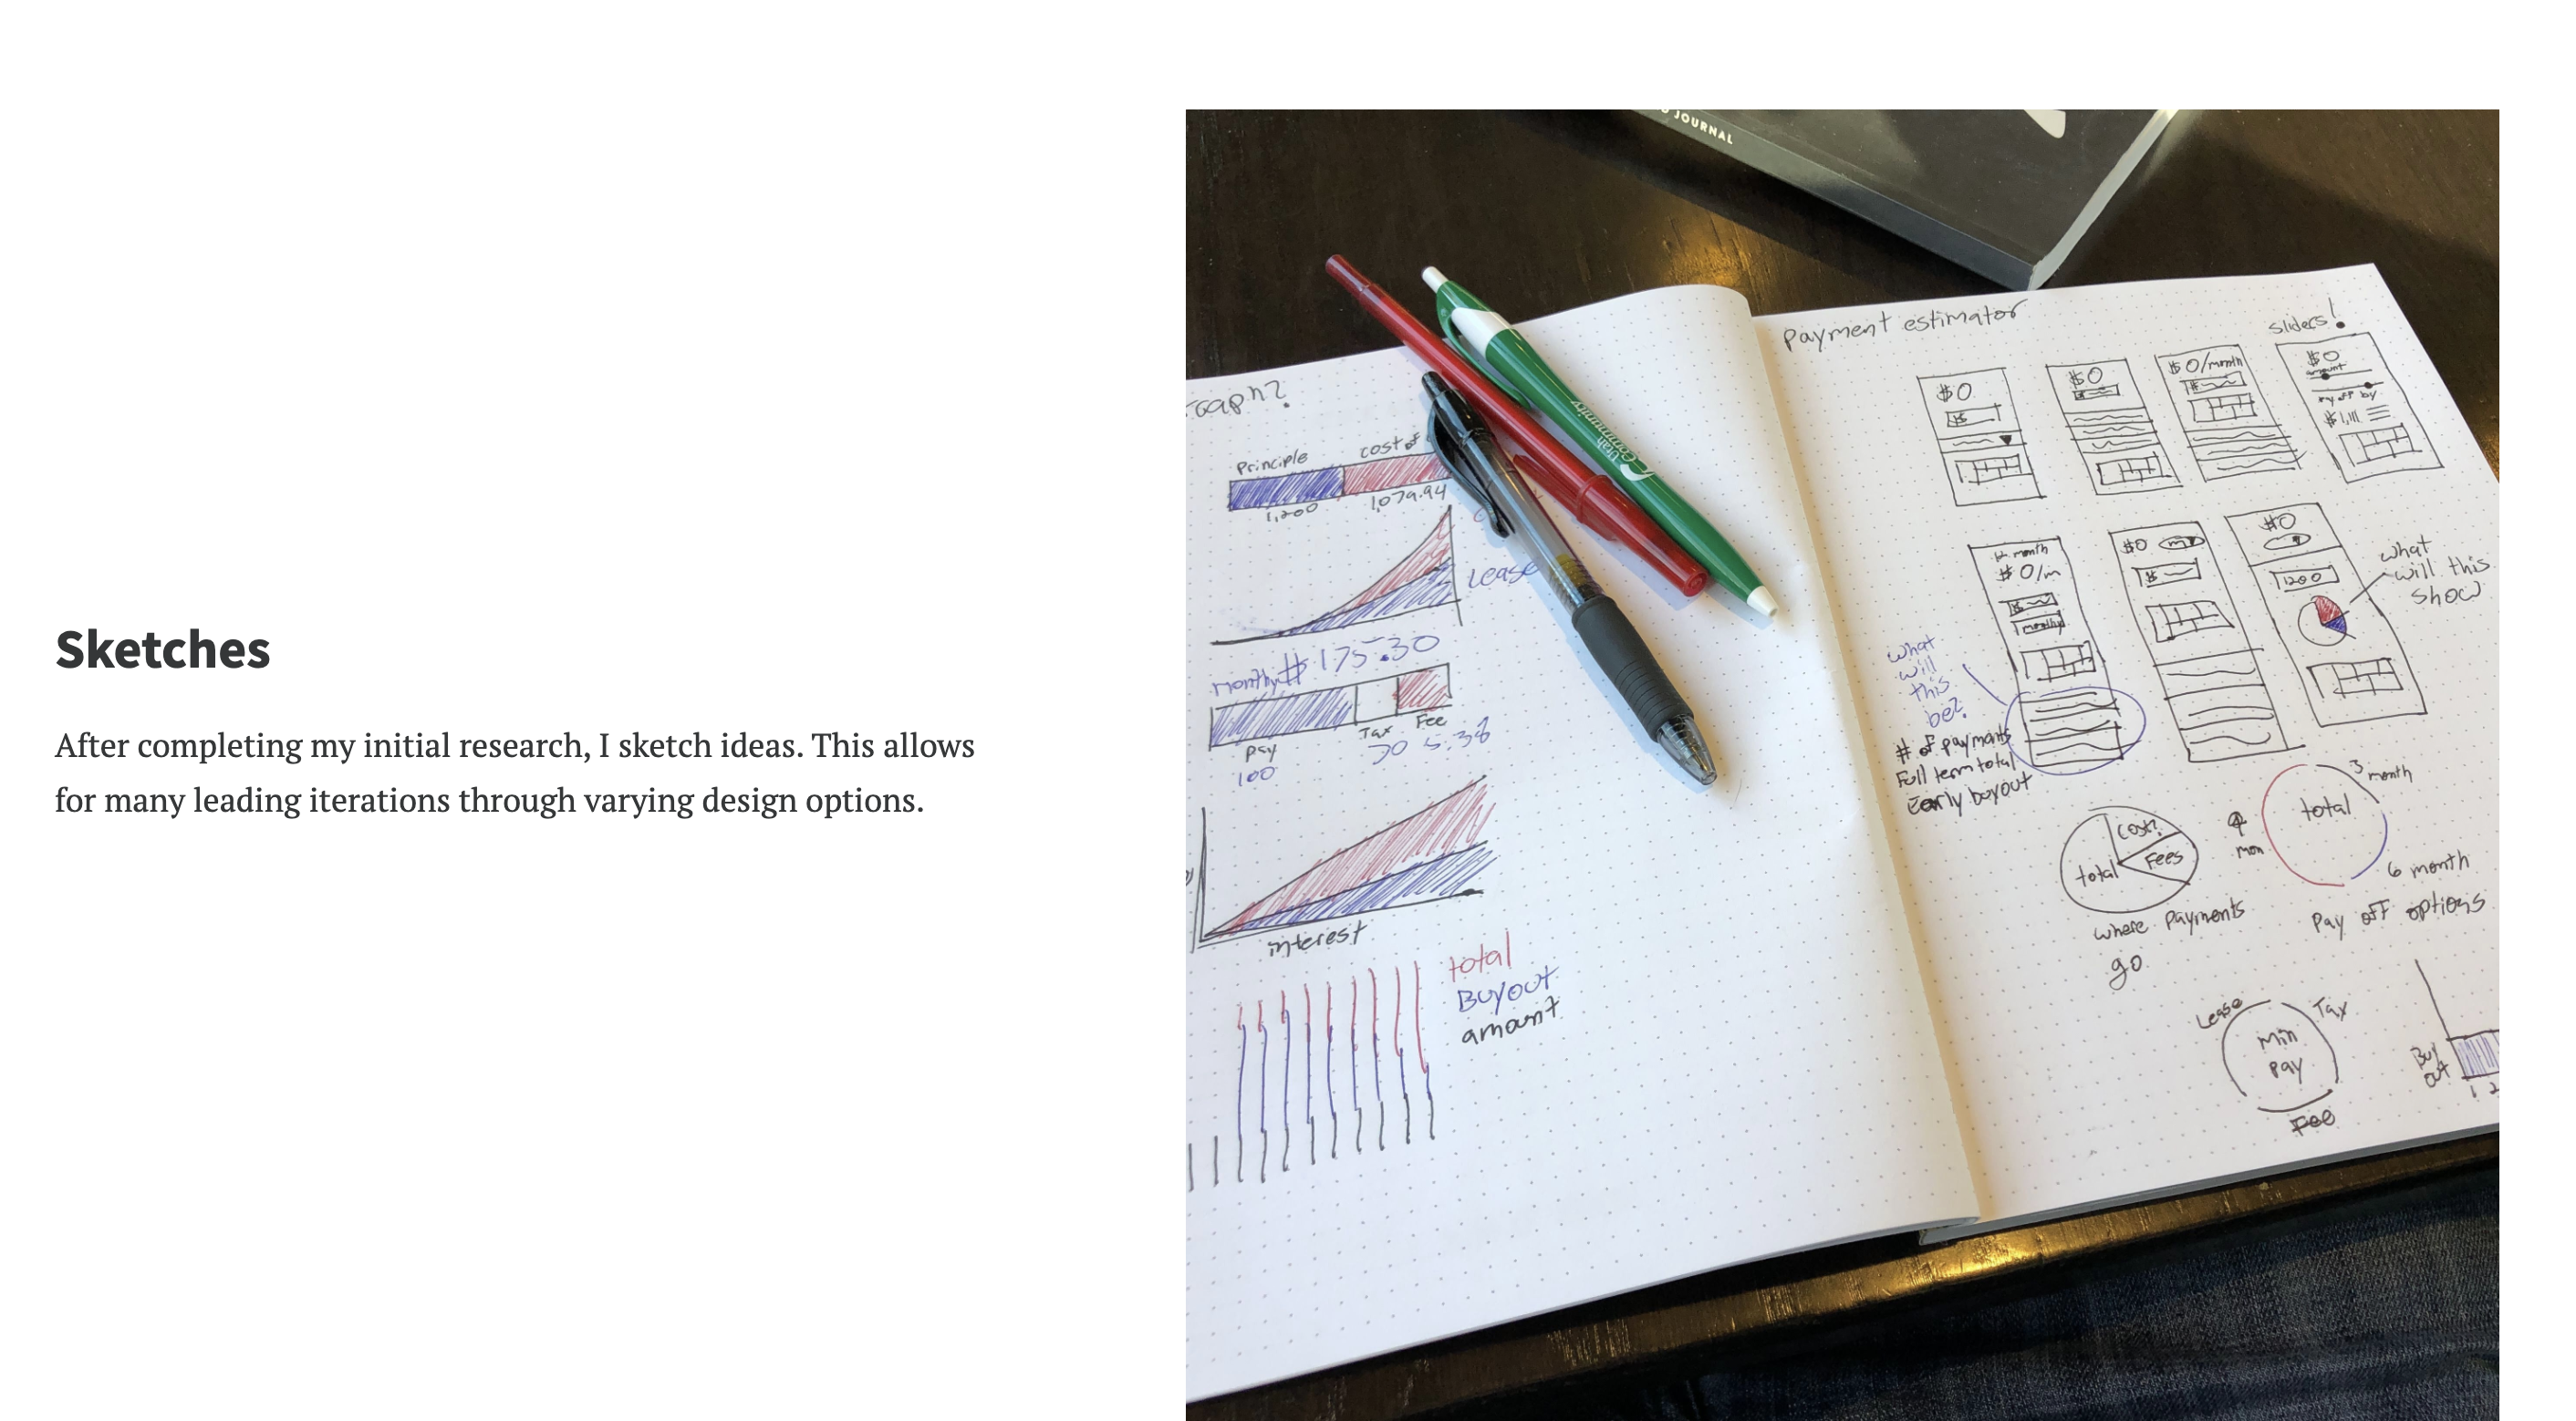 Sketches
After completing my initial research, I sketch ideas. This allows
for many leading iterations through varying design options.
JOURNAL
Utah
Community
Principle
cost of
1,200
1,079.94
Lease
monthly $175.30
Pay
Tax
Fee
100
70 5.38
interest
total
Buyout
amount
Payment estimator
sliders!
$0
$0
$0/month
$0
amount
pay off by
$1,111
month
$0/m
monthly
$0
$
$0
1200
what
will this
show
what
will
this
be?
# of payments
Full term total
Early buyout
total
cost?
Fees
where payments
go
4
mon
total
3 month
6 month
Pay off options
Lease
Tax
Min
Pay
Fee
Buy
out
1 2